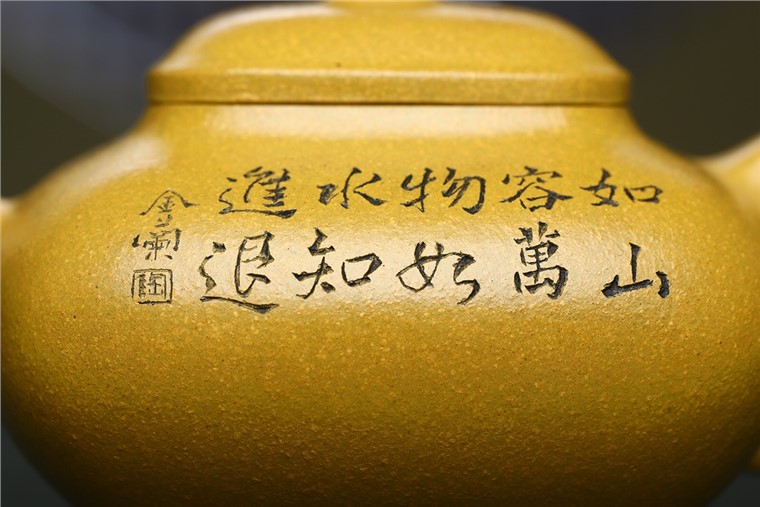 如山
容萬
物如
水知
進退
金蘭
陶